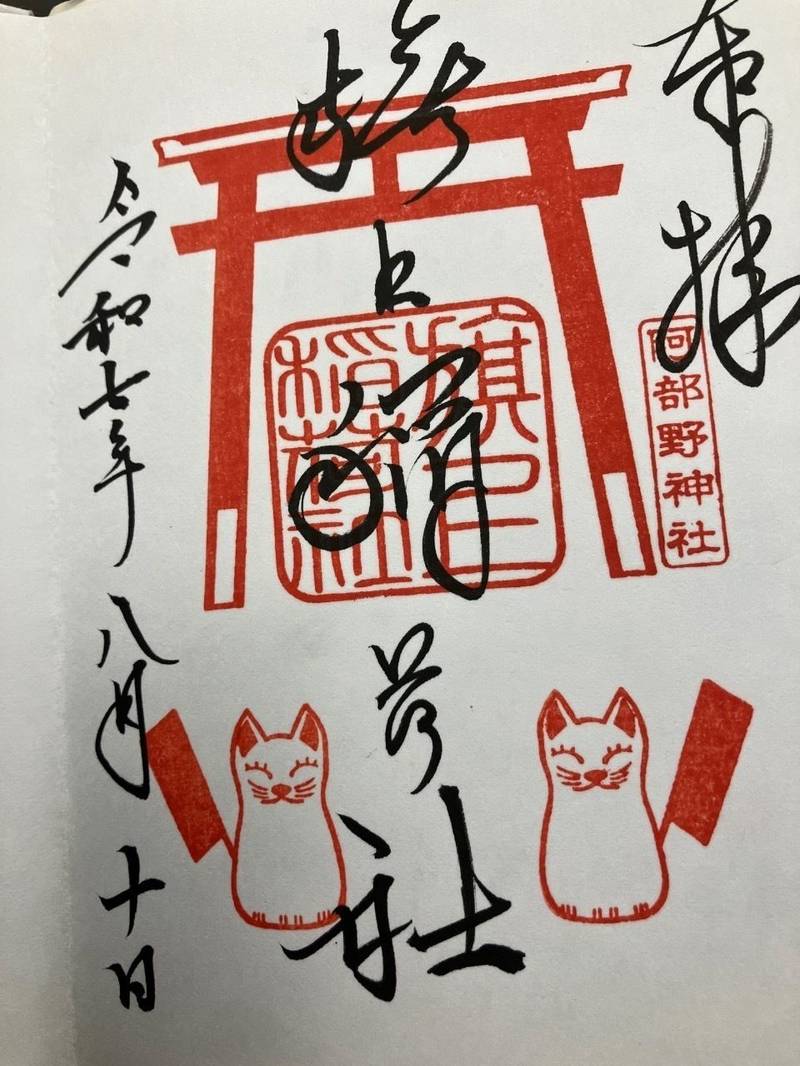 奉拝
阿部野神社
旗上稲荷社
旗上
稲荷社
令和七年八月十日